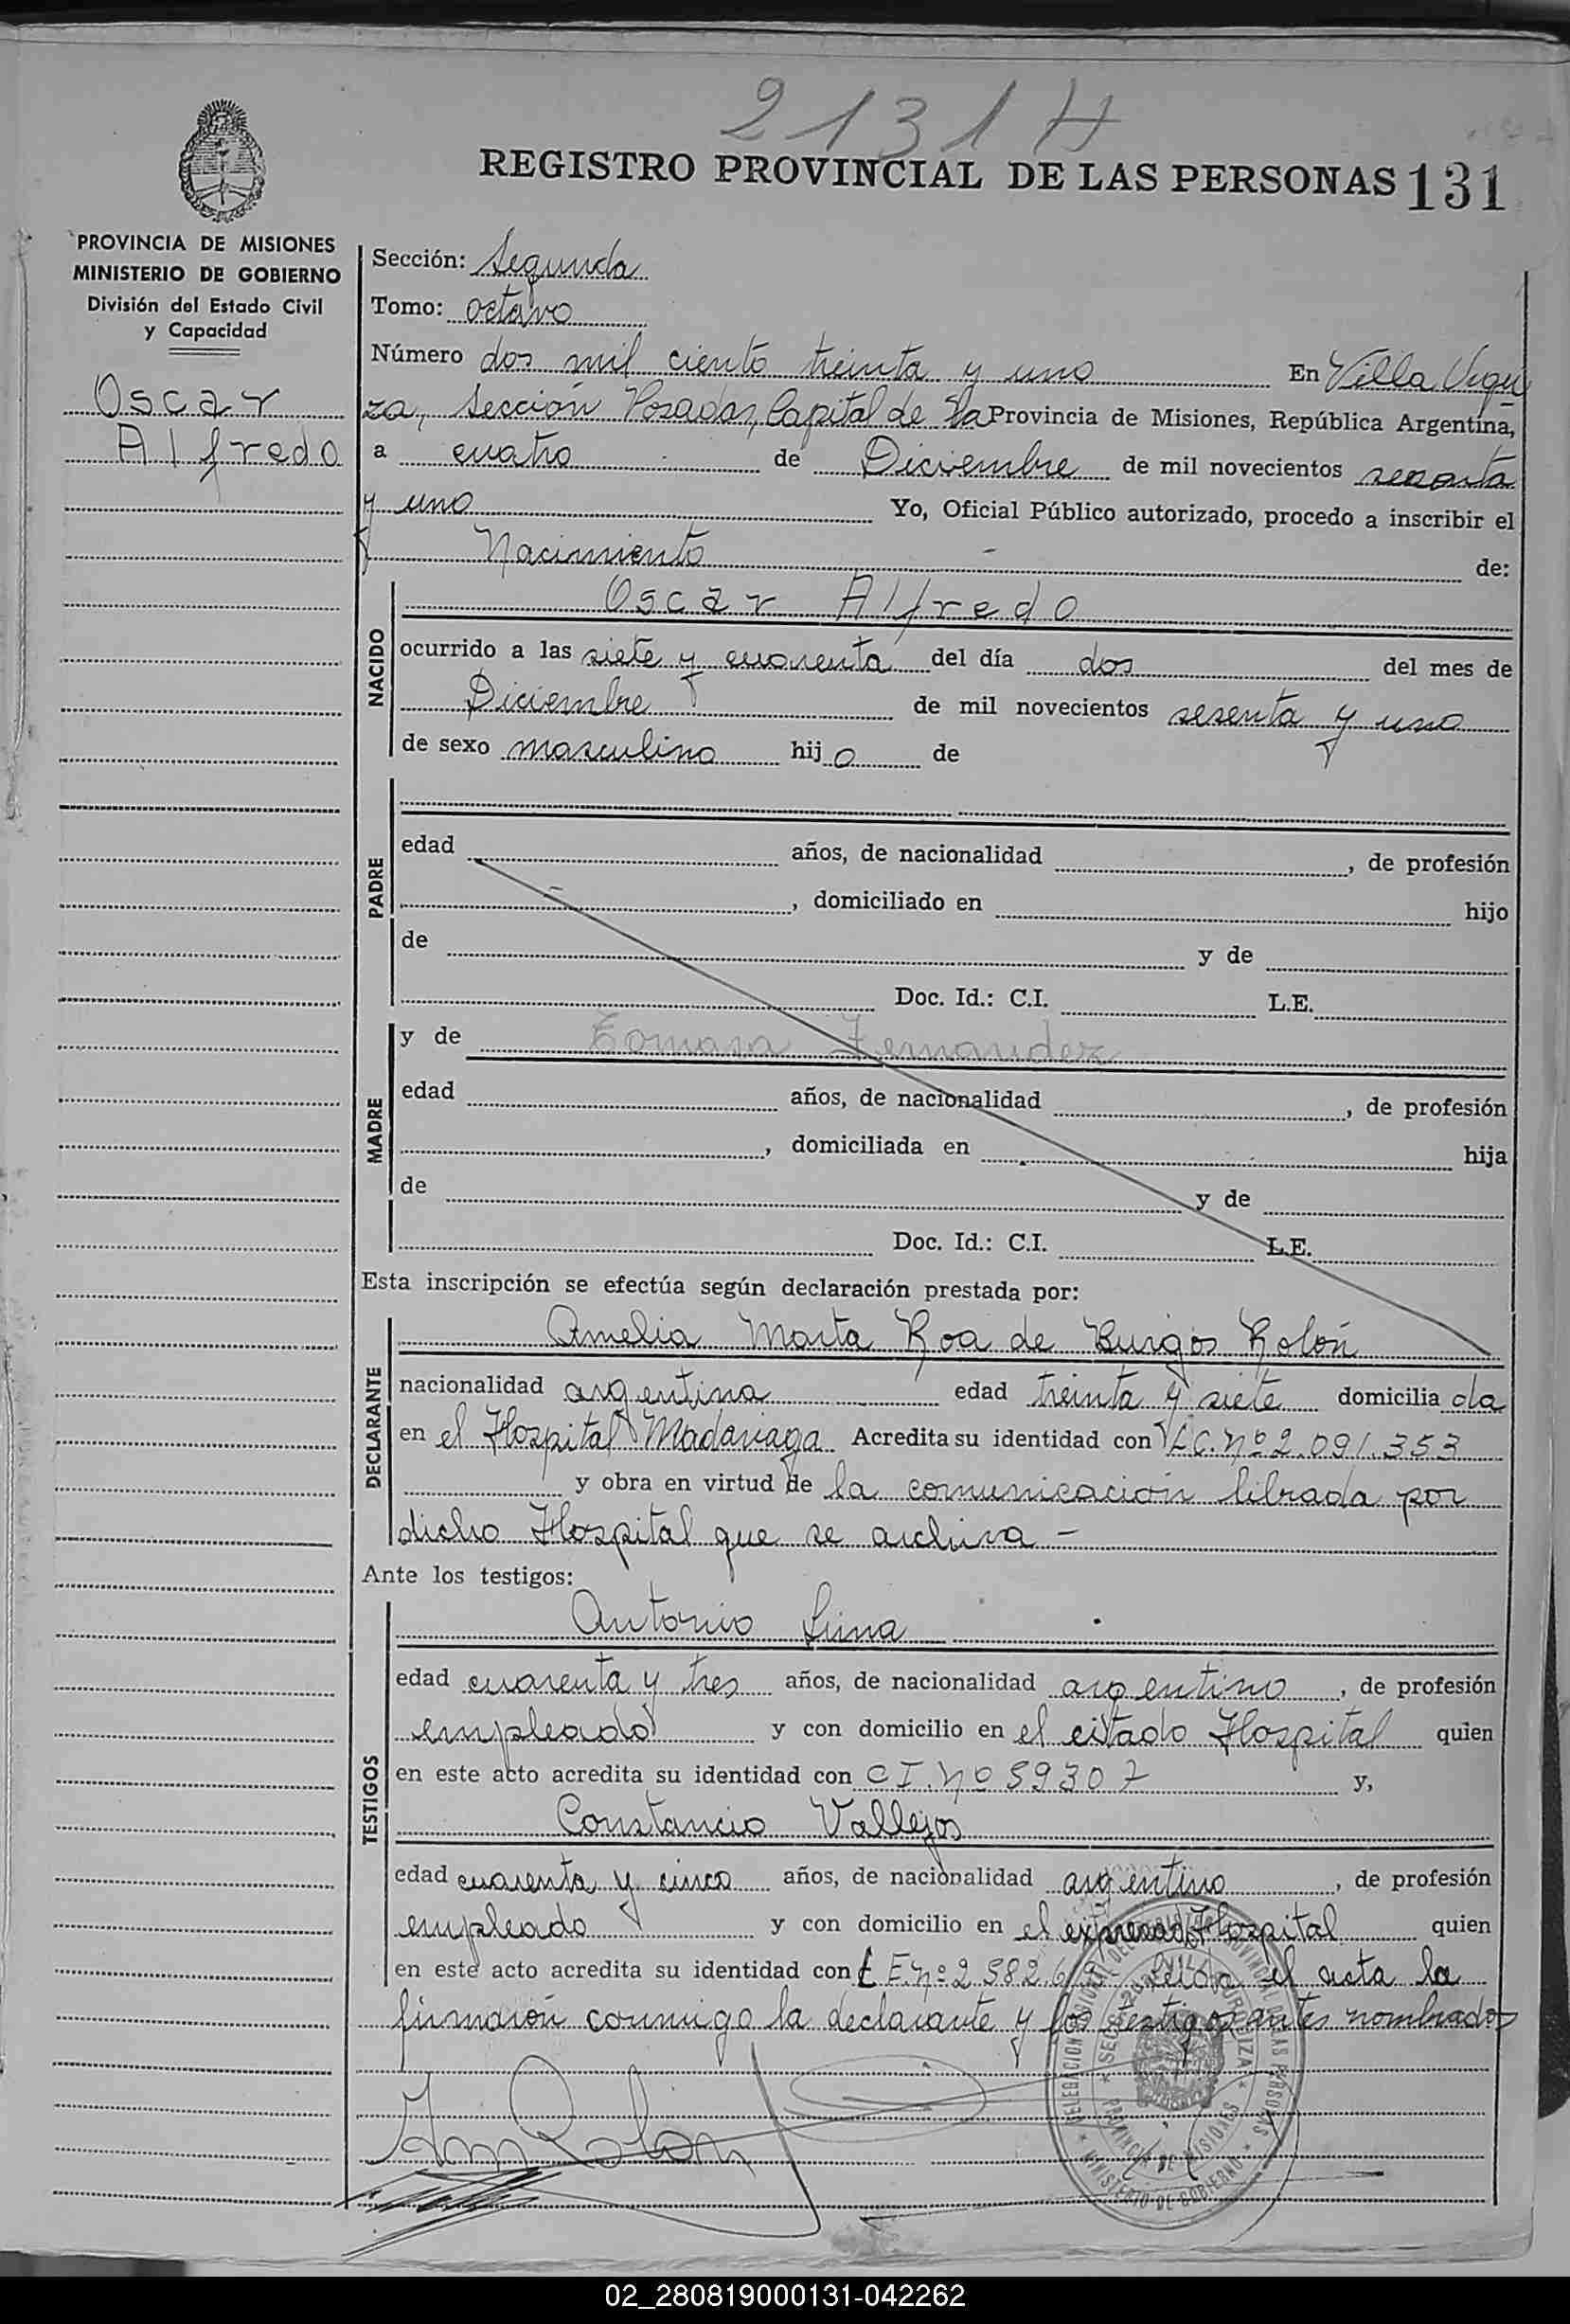 2131 H
REGISTRO PROVINCIAL DE LAS PERSONAS 131
PROVINCIA DE MISIONES
MINISTERIO DE GOBIERNO
División del Estado Civil
y Capacidad
Oscar
Alfredo
Sección: Segunda
Tomo: octavo
Número dos mil ciento treinta y uno En Villa Urqui
za, Sección Posadas, Capital de la Provincia de Misiones, República Argentina,
a cuatro de Diciembre de mil novecientos sesenta
y uno Yo, Oficial Público autorizado, procedo a inscribir el
Nacimiento de:
NACIDO
Oscar Alfredo
ocurrido a las siete y cuarenta del día dos del mes de
Diciembre de mil novecientos sesenta y uno
de sexo masculino hijo de
PADRE
edad años, de nacionalidad , de profesión
, domiciliado en hijo
de y de
Doc. Id.: C.I. L.E.
MADRE
y de Tomasa Fernandez
edad años, de nacionalidad , de profesión
, domiciliada en hija
de y de
Doc. Id.: C.I. L.E.
Esta inscripción se efectúa según declaración prestada por:
DECLARANTE
Amelia Marta Roa de Burgos Rolón
nacionalidad argentina edad treinta y siete domiciliada
en el Hospital Madariaga Acredita su identidad con L.C. Nº 2.091.353
y obra en virtud de la comunicación librada por
dicho Hospital que se archiva -
Ante los testigos:
TESTIGOS
Antonio Luna
edad cuarenta y tres años, de nacionalidad argentino, de profesión
empleado y con domicilio en el citado Hospital quien
en este acto acredita su identidad con C I. Nº 59307 y,
Constancio Vallejos
edad cuarenta y cinco años, de nacionalidad argentino, de profesión
empleado y con domicilio en el expresado Hospital quien
en este acto acredita su identidad con L E. Nº 2 582.6 Leida el acta la
firmaron conmigo la declarante y los testigos antes nombrados
DELEGACION PROVINCIAL DE LAS PERSONAS
PROVINCIA DE MISIONES
MINISTERIO DE GOBIERNO
02_280819000131-042262